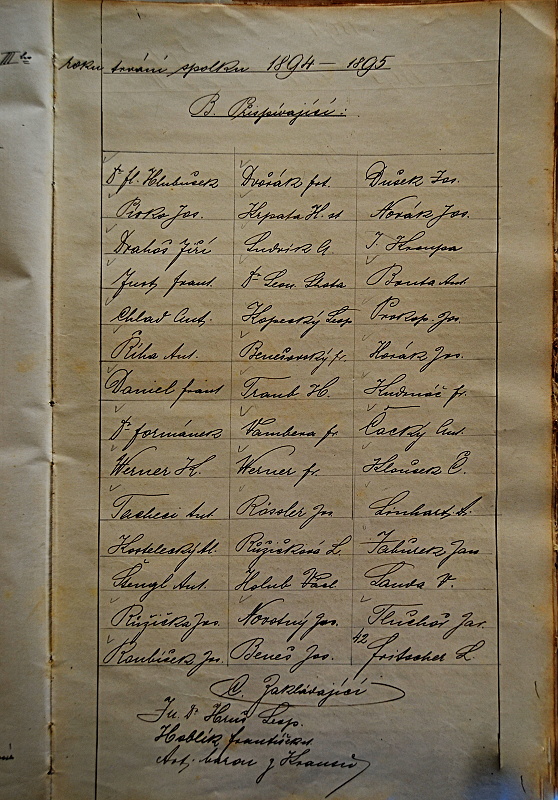 III.ho roku trvání spolku 1894 — 1895
B. Přispívající:
Dr fl. Hlubuček Dvořák frt. Dušek Jos.
Roko Jos. Krpata H. st Novák Jos.
Drahoš Jiří Ludvík A. J. Kroupa
Just frant. Dr Leon. Lhota Bouta Ant.
Chlad Ant. Kopecký Leop Prokop Jos.
Říha Ant. Benešovský fr. Horák Jos.
Daniel frant Traub H. Kudrnáč fr.
Dr formánek Vambera fr. Čacký Ant.
Werner K. Werner fr. Kloušek Č.
Tacheci Ant. Rössler Jos Linhart A.
Kostelecký Al. Růžičková L. Tabůrek Jan
Štengl Ant. Holub Václ Landa V.
Růžička Jos. Novotný Jos. Tluchoš Jar.
Roubíček Jos. Beneš Jos. 42 Fritscher L.
C. Zakládající
Ju. Dr Hruš Leop.
Hoblík františek st.
Art. baron z Krausů